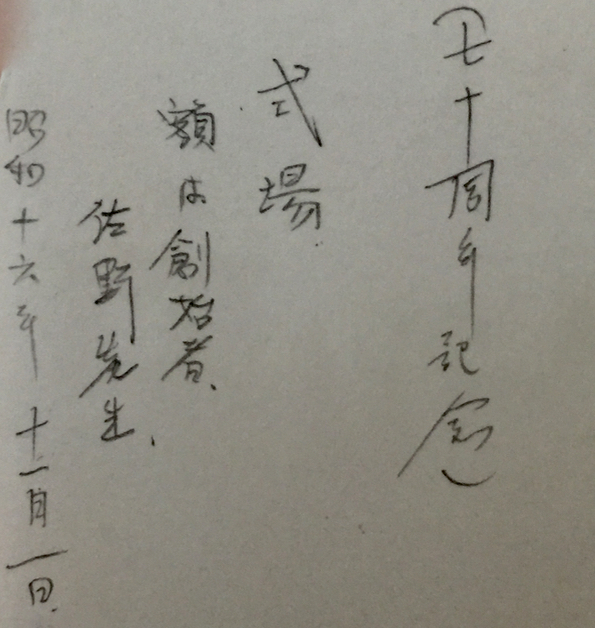 (七十周年記念)
式場
額は創始者、
佐野先生、
昭和十六年十一月一日